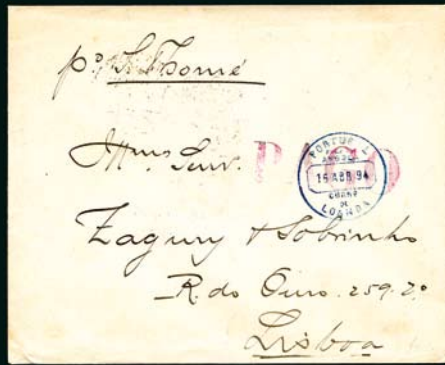 pr. S. Thomé
Illmos. Senr.
PAGO
PORTUGAL
ANGOLA
16 ABR 94
CORRO
DE
LOANDA
Zagury & Sobrinho
R. do Ouro. 259. 2º
Lisboa